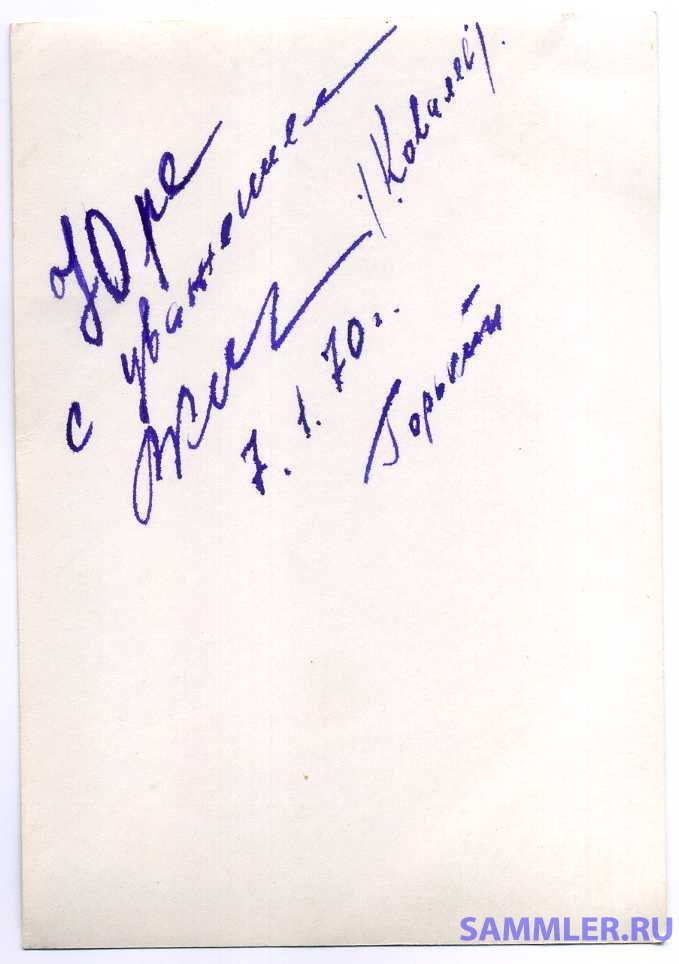 Юре
с уважением
/Ковалев/.
7.1.70г.
Горький
SAMMLER.RU